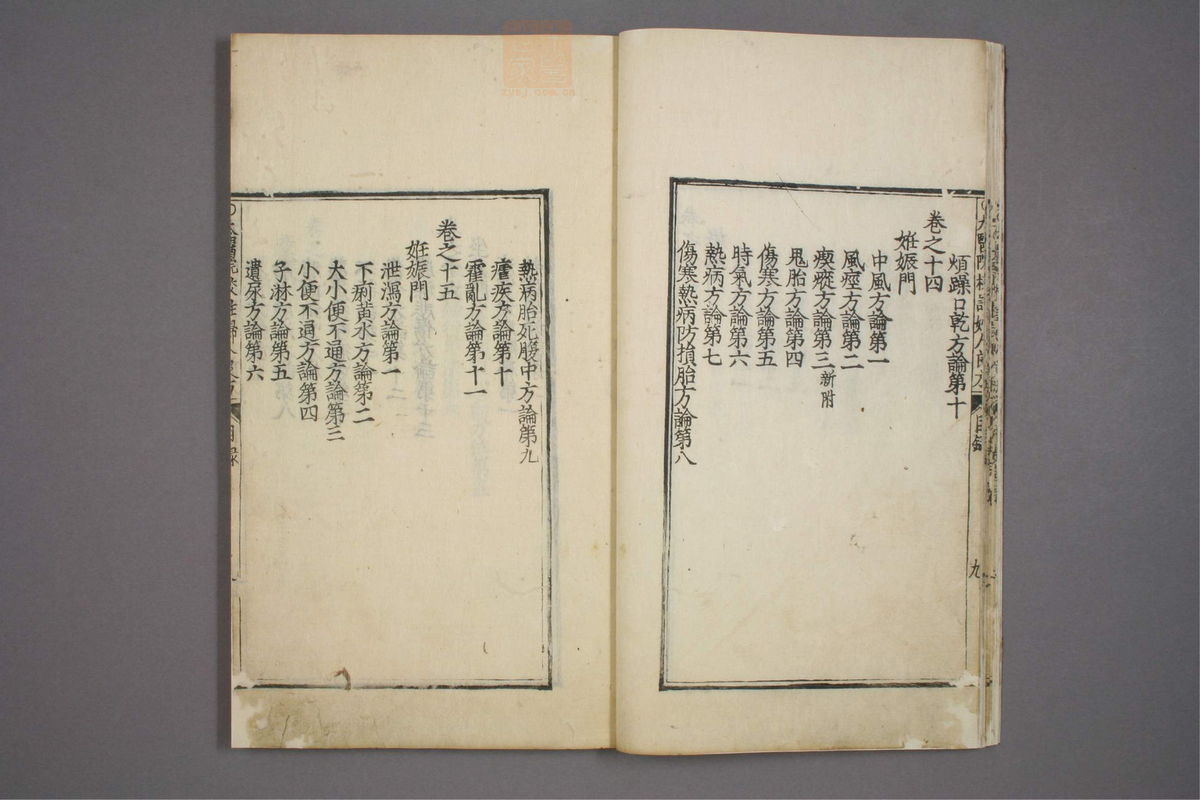 煩躁口乾方論第十
卷之十四
姙娠門
中風方論第一
風痓方論第二
瘈瘲方論第三新附
鬼胎方論第四
傷寒方論第五
時氣方論第六
熱病方論第七
傷寒熱病防損胎方論第八
目錄
九
熱病胎死腹中方論第九
瘧疾方論第十
霍亂方論第十一
卷之十五
姙娠門
泄瀉方論第一
下痢黃水方論第二
大小便不通方論第三
小便不通方論第四
子淋方論第五
遺尿方論第六
目錄
zysj.com.cn